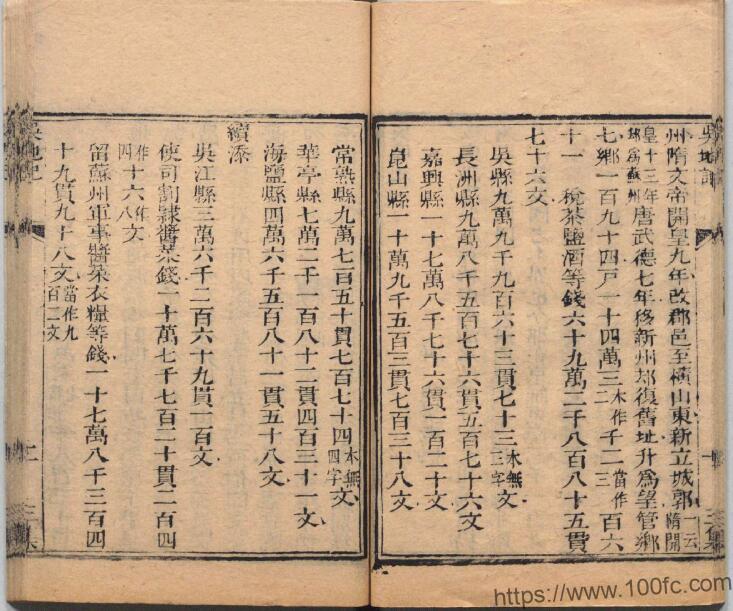 吳地記
州隋文帝開皇九年改郡邑至橫山東新立城郭一云隋開
皇十三年郡爲蘇州唐武德七年移新州却復舊址升爲望管鄉
七鄉一百九十四戸一十四萬三一本作二千二當作三百六
十一 稅茶鹽酒等錢六十九萬二千八百八十五貫
七十六文
吳縣九萬九千九百六十三貫七十三本無三字文
長洲縣九萬八千五百七十六貫五百七十六文
嘉興縣一十七萬八千七十六貫一百二十文
崑山縣一十萬九千五百三貫七百三十八文
三集
常熟縣九萬七百五十貫七百七十四本無四字文
華亭縣七萬二千一百八十二貫四百三十一文
海鹽縣四萬六千五百八十一貫五十八文
續添
吳江縣三萬六千二百六十九貫一百文
使司割隸醬菜錢一十萬七千七百二十貫二百四
作四十六作八文
留蘇州軍事醬菜衣糧等錢一十七萬八千三百四
十九貫九十八文當作九百二文
吳地記
十一
三集
https://www.100fc.com